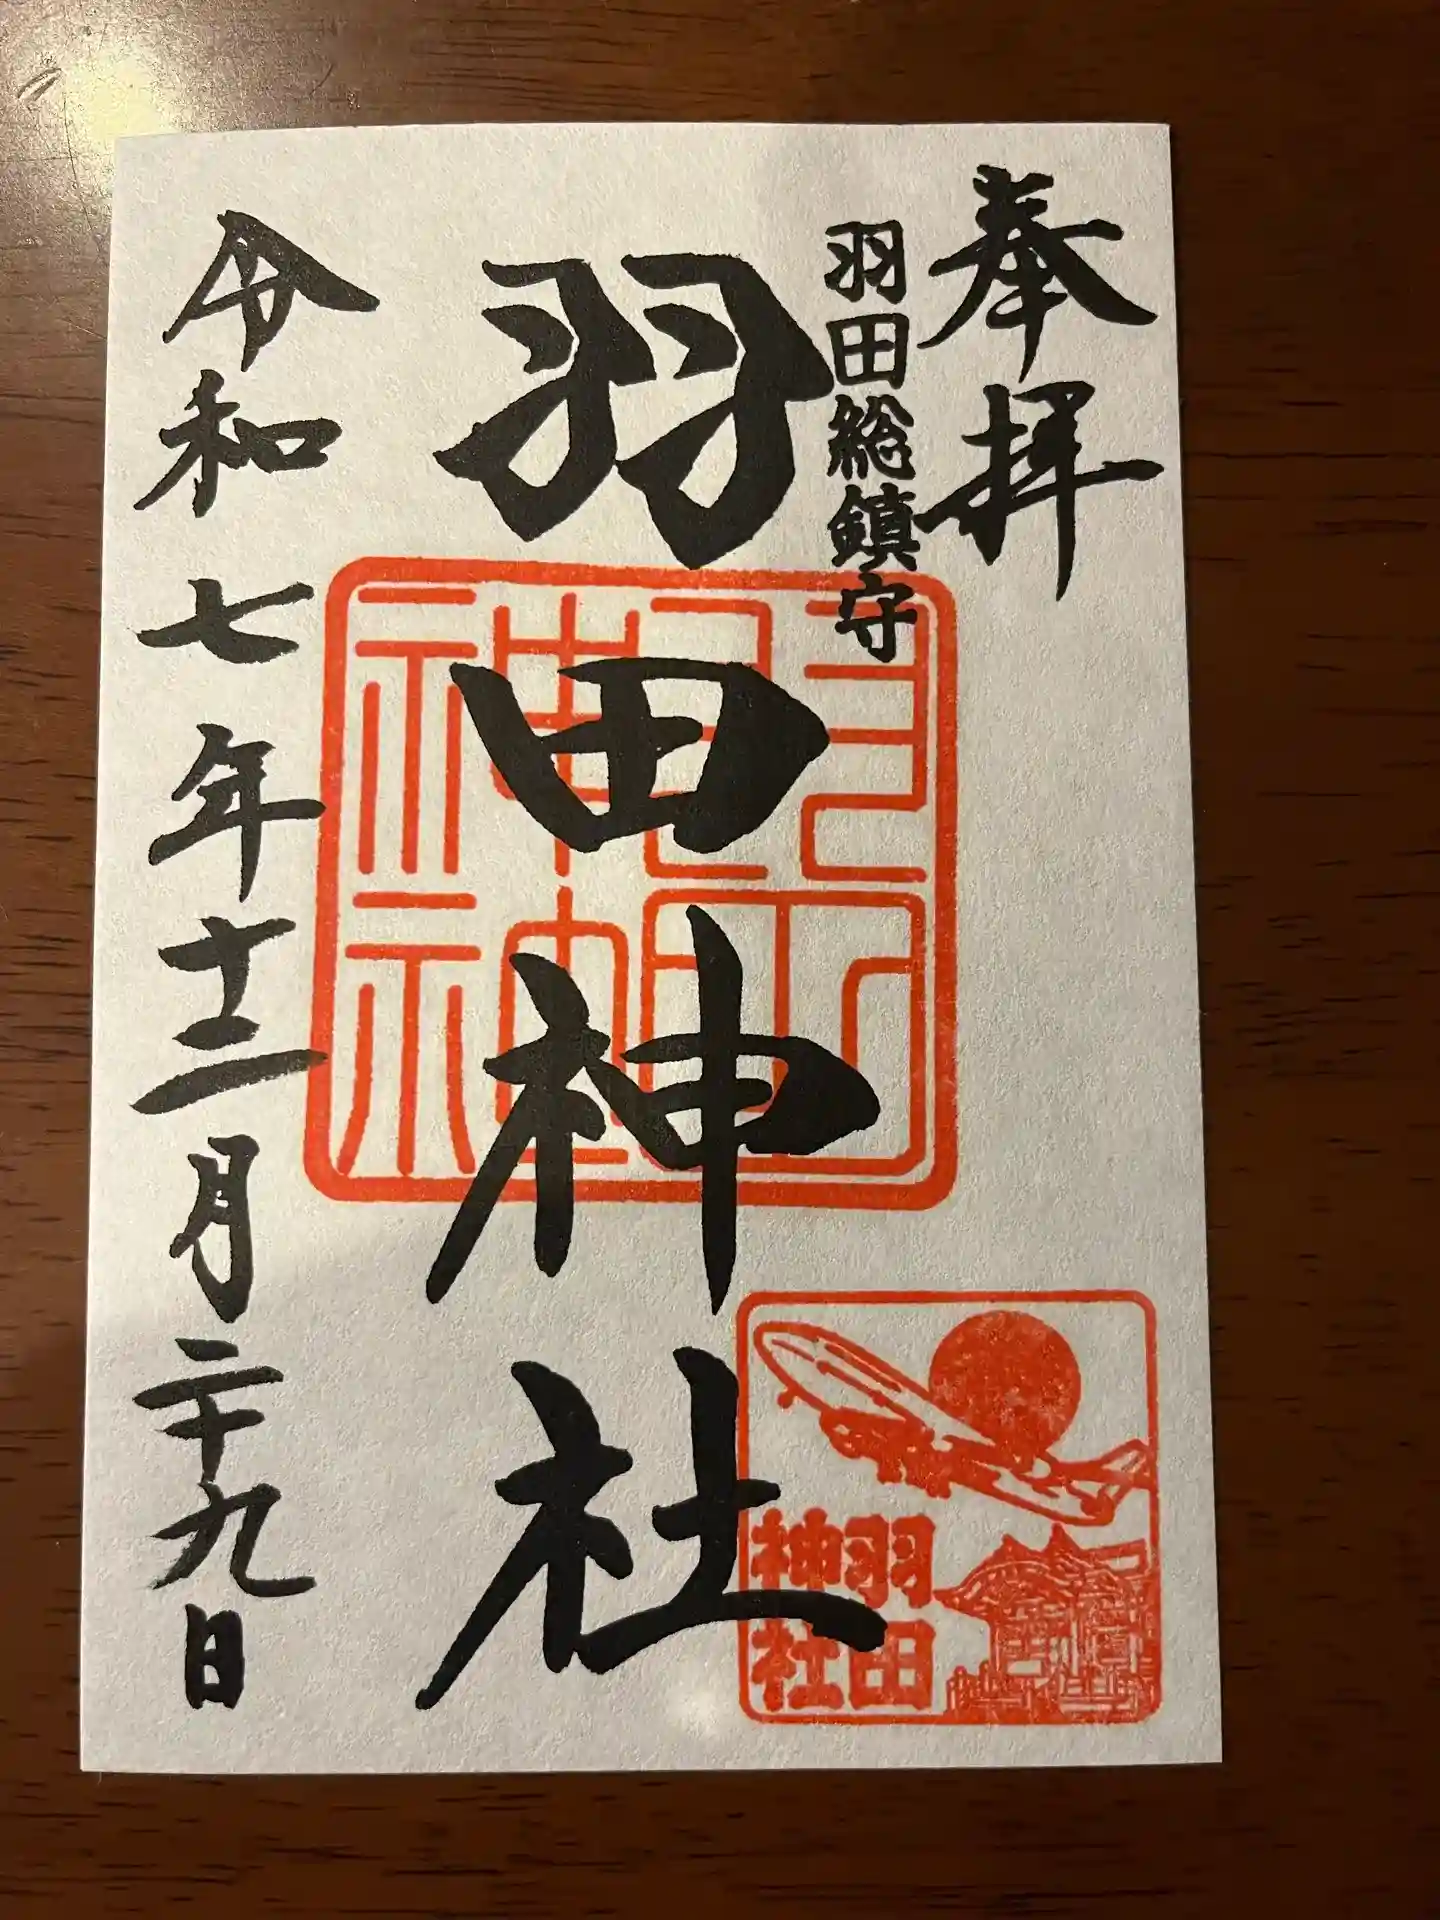 奉拝
羽田総鎮守
羽田神社
令和七年十二月二十九日
羽田
神社
羽田
神社